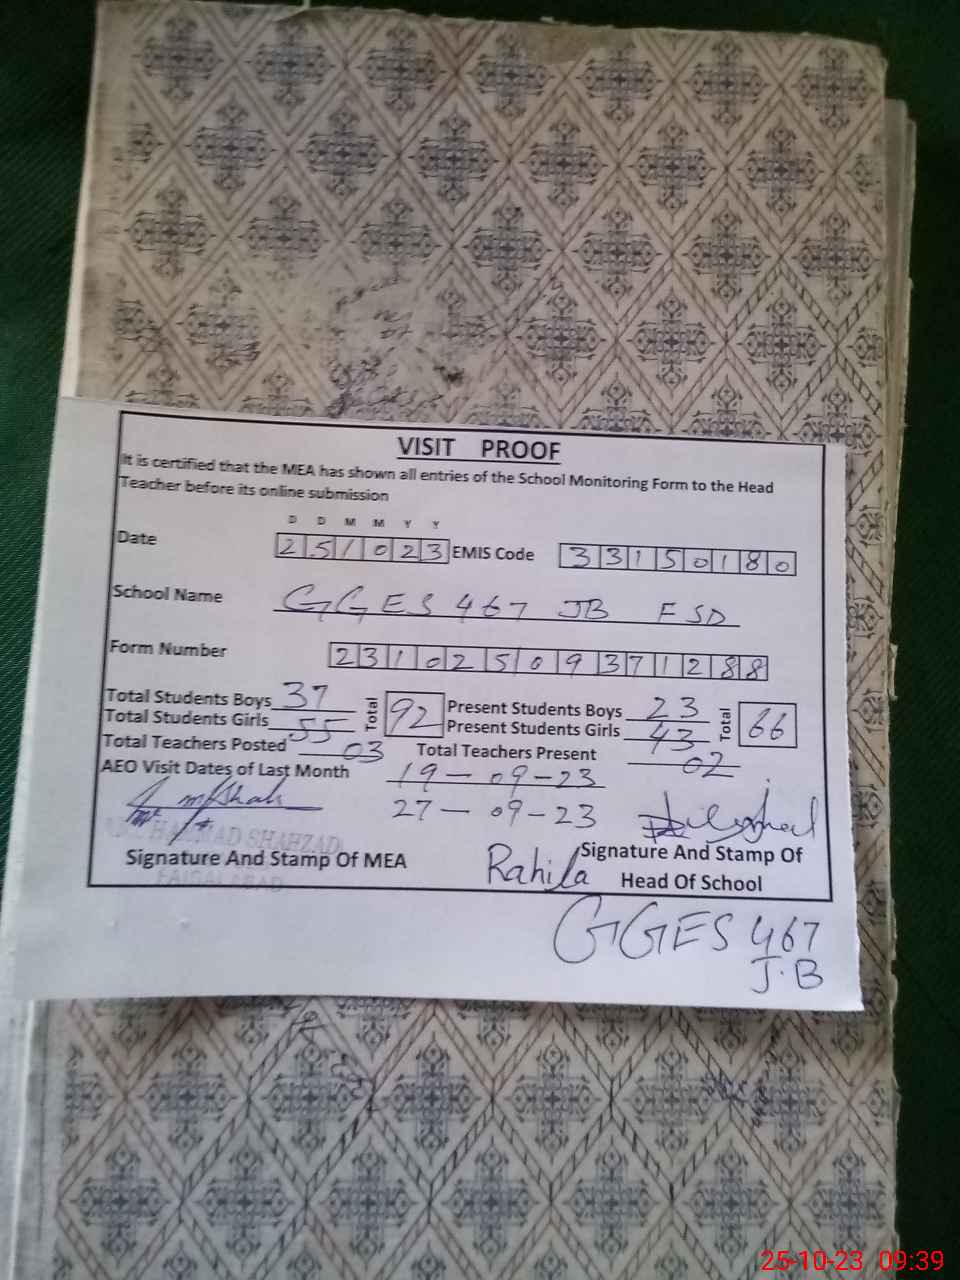 VISIT PROOF
It is certified that the MEA has shown all entries of the School Monitoring Form to the Head
Teacher before its online submission
D D M M Y Y
Date 251023 EMIS Code 33150180
School Name GGES 467 JB FSD
Form Number 23102509371288
Total Students Boys 37 Total 92 Present Students Boys 23 Total 66
Total Students Girls 55 Present Students Girls 43
Total Teachers Posted 03 Total Teachers Present 02
AEO Visit Dates of Last Month 19-09-23
27-09-23
SHAHZAD
Signature And Stamp Of MEA Rahila Signature And Stamp Of
FAISALABAD Head Of School
GGES 467
J.B
25-10-23 09:39